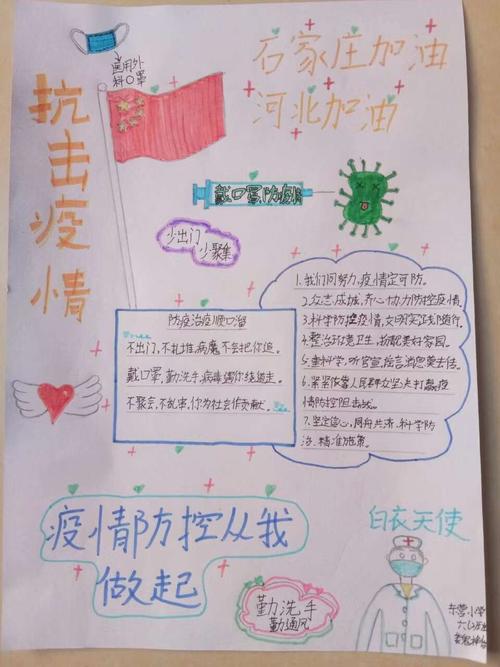 医用外
科口罩
石家庄加油
河北加油
抗击疫情
戴口罩防疫情
少出门
少聚集
防疫治疫顺口溜
不出门,不扎堆,病魔不会把你追。
戴口罩,勤洗手,病毒偶你绕道走。
不聚会,不乱串,你为社会作贡献。
1.我们同努力,疫情定可防。
2.众志成城,齐心协力防控疫情。
3.科学防控疫情,文明实践随行。
4.整治环境卫生,扮靓美好家园。
5.查科学,听官宣,谣言消息莫去信。
6.紧紧依靠人民群众坚决打赢疫
情防控阻击战。
7.坚定信心,同舟共济,科学防
治,精准施策。
疫情防控从我
做起
勤洗手
勤通风
白衣天使
小学